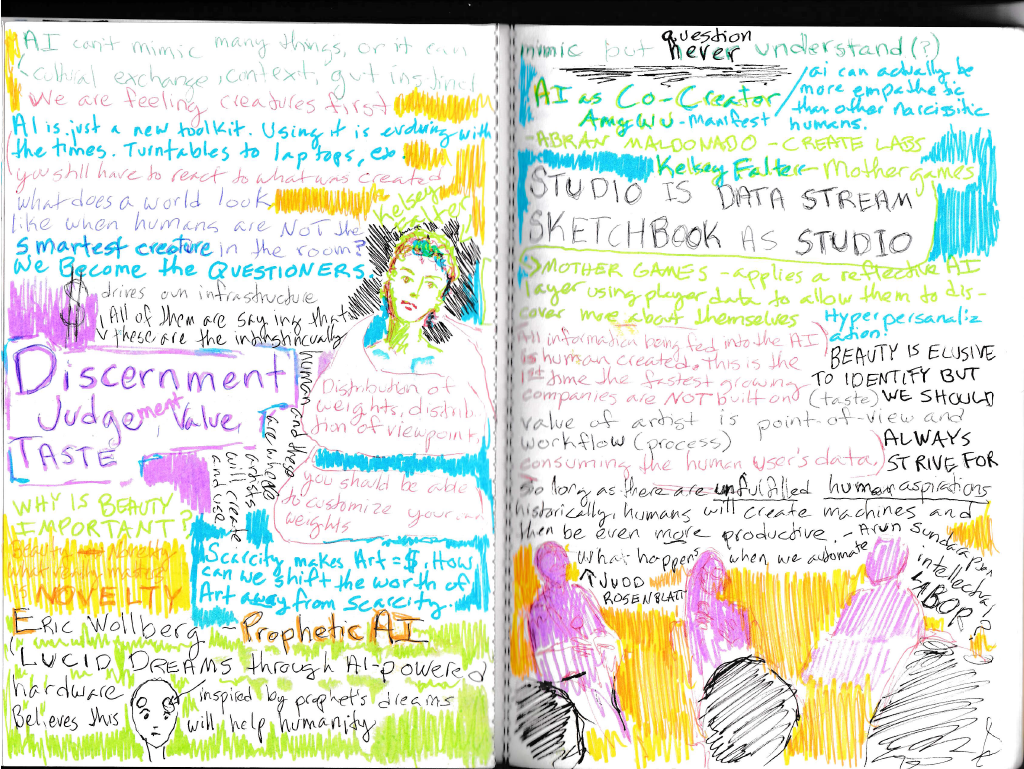 AI can't mimic many things, or it can
cultural exchange, context, gut instinct
We are feeling creatures first
AI is just a new toolkit. Using it is evolving with
the times. Turntables to laptops, ex.
you still have to react to what was created
what does a world look
like when humans are NOT the
smartest creature in the room?
We Become the QUESTIONERS.
Kelsey
Falter
$ drives our infrastructure
All of them are saying that
these are the
human and these
are where
artists
will create
and use
Discernment
Judgement, Value,
TASTE
Distribution of
weights, distribu-
tion of viewpoint,
you should be able
to customize your
weights
WHY IS BEAUTY
IMPORTANT?
Beauty Novelty
what really matters
is NOVELTY
Scarcity makes Art = $. How
can we shift the worth of
Art away from scarcity.
Eric Wollberg - Prophetic AI
(LUCID DREAMS through AI-powered
hardware
Believes this
inspired by prophet's dreams
will help humanity
question
mimic but never understand(?)
AI as Co-Creator
Amy Wu - Manifest
ai can actually be
more empathetic
than other narcissitic
humans.
- ABRAN MALDONADO - CREATE LABS
Kelsey Falter - Mother games
STUDIO IS DATA STREAM
SKETCHBOOK AS STUDIO
MOTHER GAMES - applies a reflective AI
layer using player data to allow them to dis-
cover more about themselves
Hyperpersonaliz
ation.
All information being fed into the AI
is human created. This is the
1st time the fastest growing
companies are NOT built on
BEAUTY IS ELUSIVE
TO IDENTIFY BUT
(taste) WE SHOULD
ALWAYS
STRIVE FOR
value of artist is point-of-view and
workflow (process)
consuming the human user's data.
So long as there are unfulfilled human aspirations
historically, humans will create machines and
then be even more productive. - Arun Sundararajan
What happens when we automate
intellectual
LABOR?
JUDD
ROSENBLATT